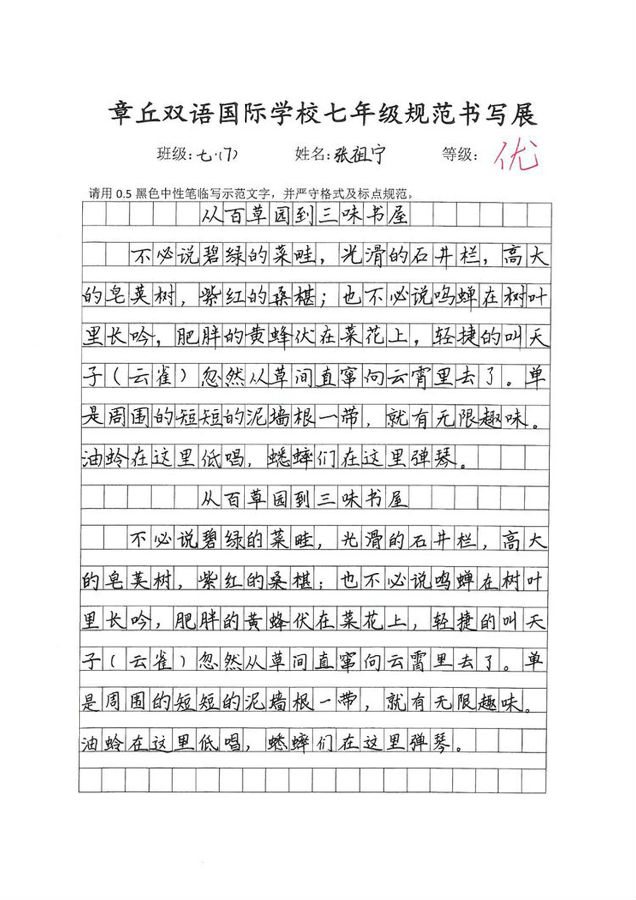 章丘双语国际学校七年级规范书写展
班级:七·(7) 姓名:张祖宁 等级:优
请用 0.5 黑色中性笔临写示范文字，并严守格式及标点规范。
从百草园到三味书屋
不必说碧绿的菜畦，光滑的石井栏，高大
的皂荚树，紫红的桑椹；也不必说鸣蝉在树叶
里长吟，肥胖的黄蜂伏在菜花上，轻捷的叫天
子（云雀）忽然从草间直窜向云霄里去了。单
是周围的短短的泥墙根一带，就有无限趣味。
油蛉在这里低唱，蟋蟀们在这里弹琴。
从百草园到三味书屋
不必说碧绿的菜畦，光滑的石井栏，高大
的皂荚树，紫红的桑椹；也不必说鸣蝉在树叶
里长吟，肥胖的黄蜂伏在菜花上，轻捷的叫天
子（云雀）忽然从草间直窜向云霄里去了。单
是周围的短短的泥墙根一带，就有无限趣味。
油蛉在这里低唱，蟋蟀们在这里弹琴。